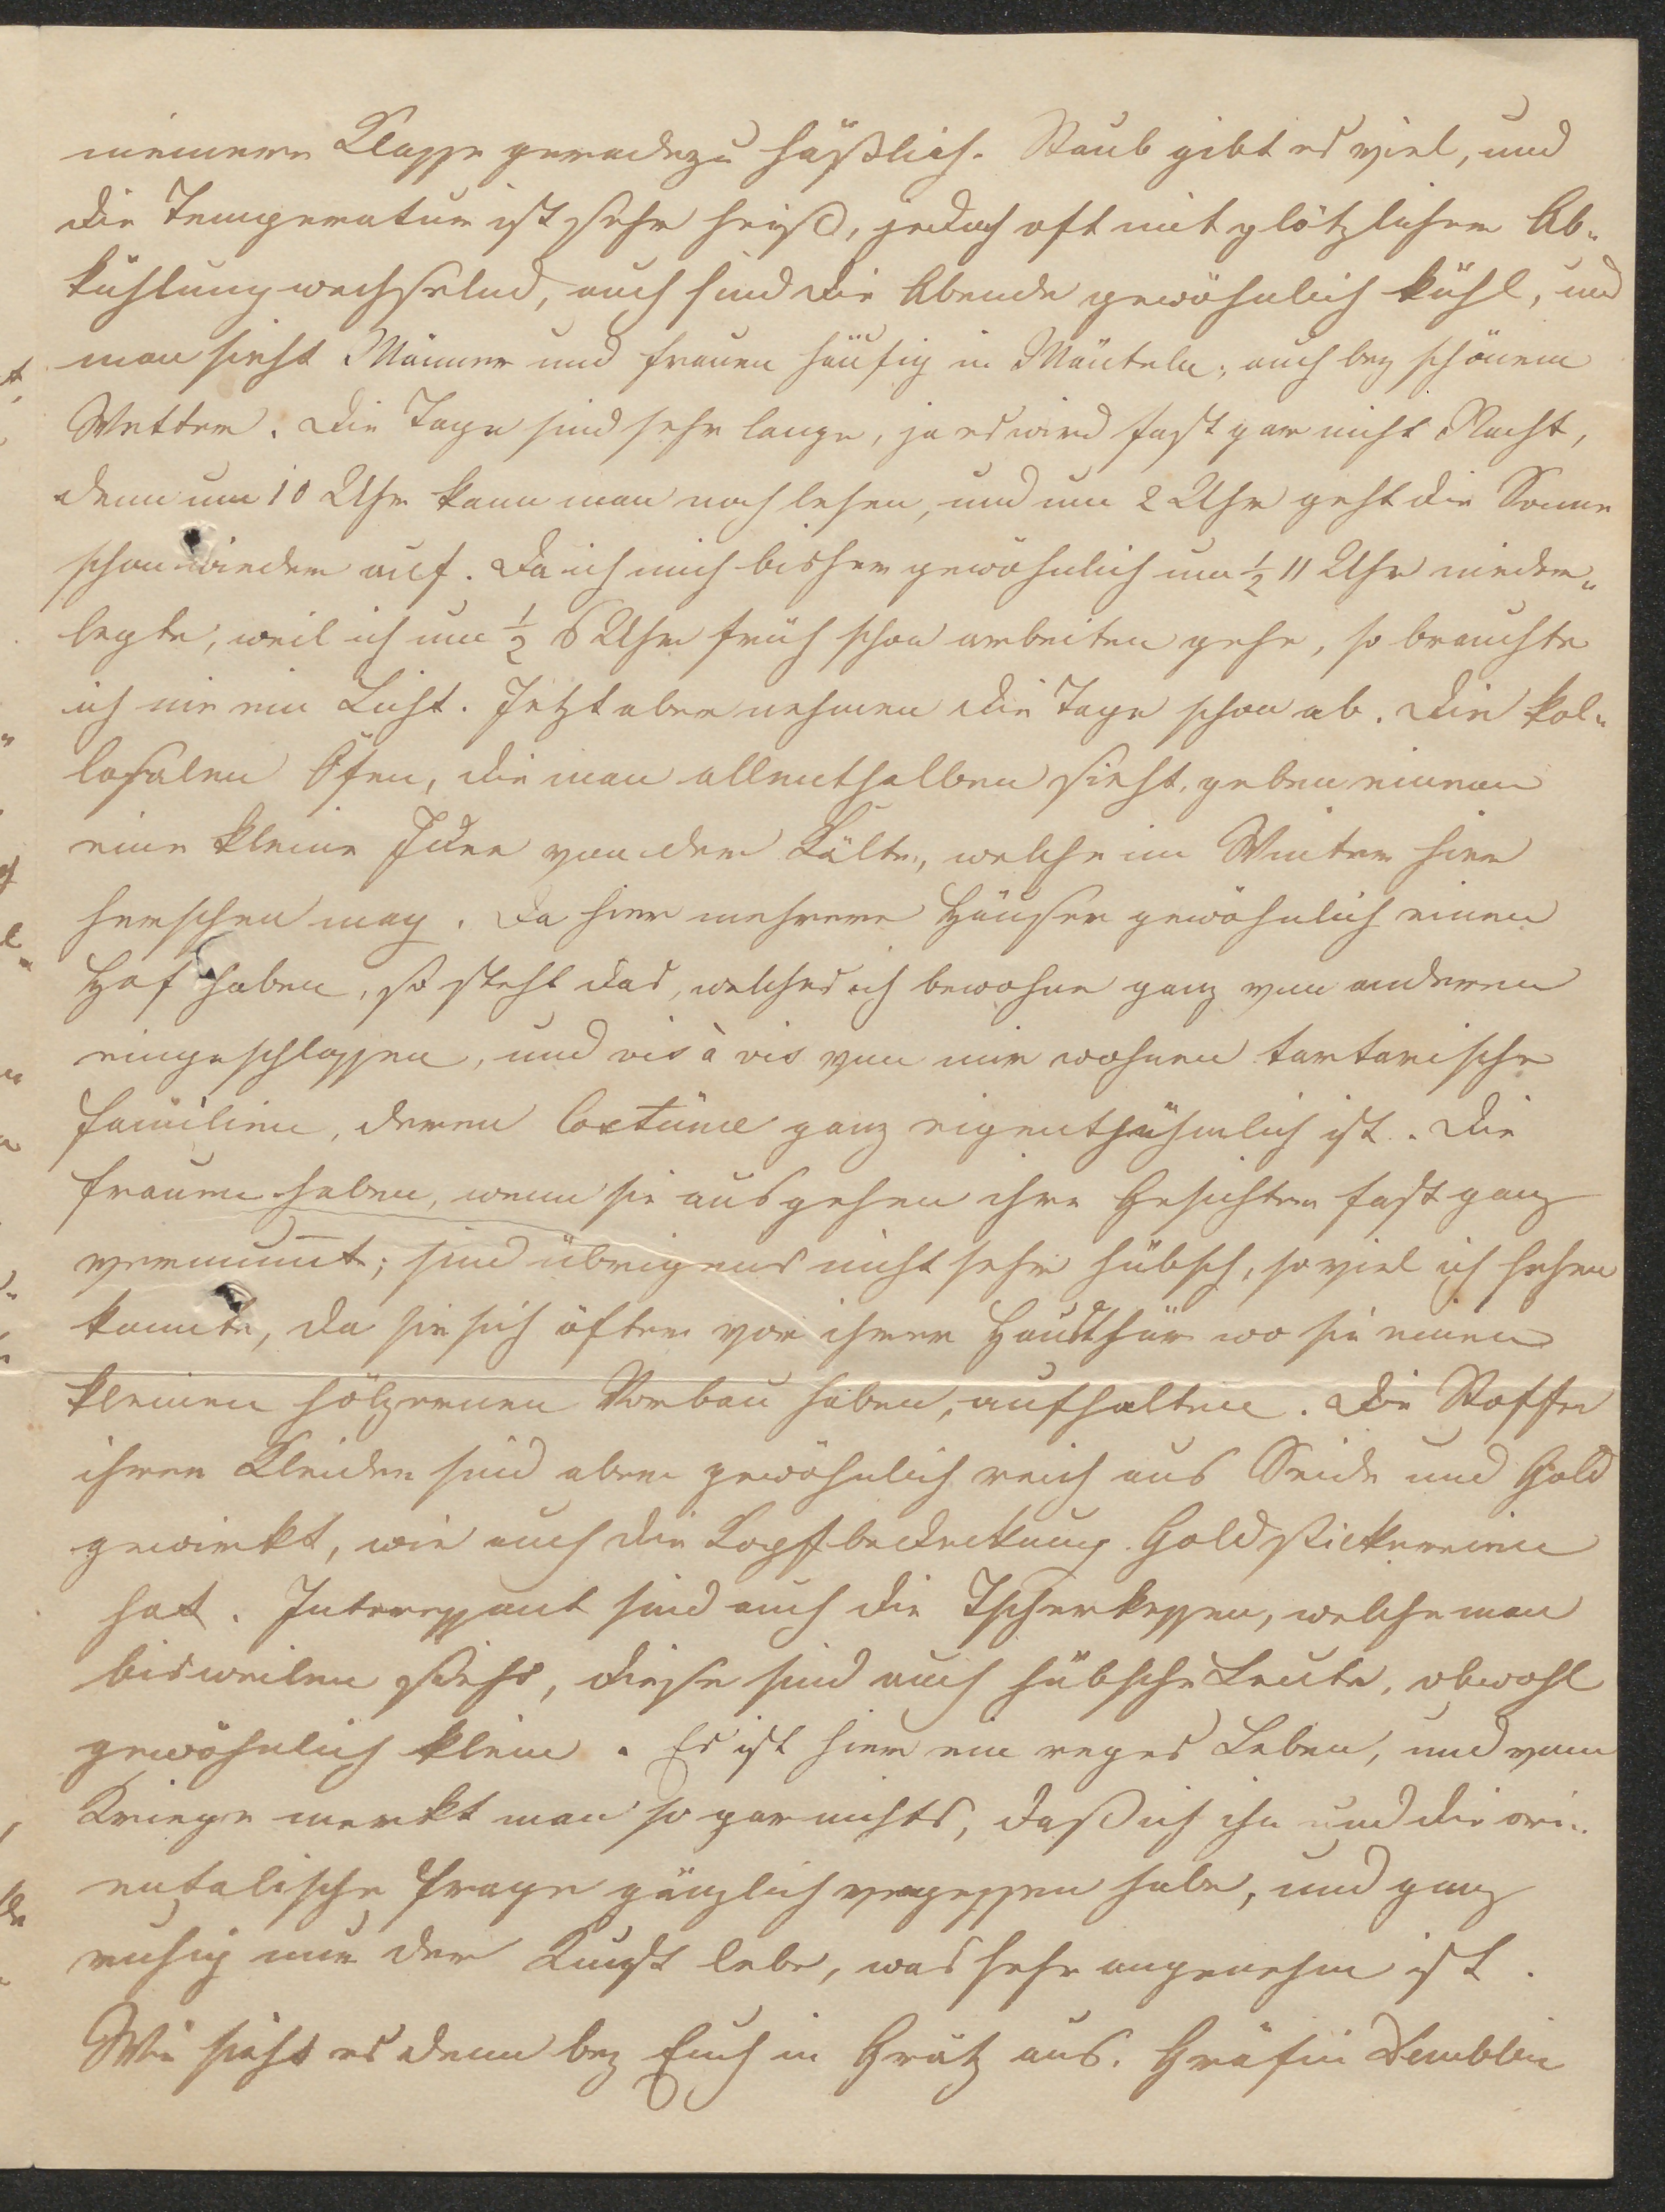 meinern Klasse geradezu häßlich. Staub gibt es viel, und
die Temperatur ist sehr heiß, jedoch oft mit plötzlicher Ab-
kühlung wechselnd, auch sind die Abende gewöhnlich kühl, und
man sieht Männer und Frauen häufig in Mänteln, auch bey schönem
Wetter. Die Tage sind sehr lange, ja es wird fast gar nicht Nacht,
denn um 10 Uhr kann man noch lesen, und um 2 Uhr geht die Sonne
schon wieder auf. Da ich mich bisher gewöhnlich um ½ 11 Uhr nieder-
legte, weil ich um ½ 6 Uhr früh schon arbeiten gehe, so brauchte
ich nie ein Licht. Jetzt aber nehmen die Tage schon ab. Die kol-
losalen Öfen, die man allenthalben sieht, geben einem
eine kleine Idee von der Kälte, welche im Winter hier
herschen mag. Da hier mehrere Häuser gewöhnlich einen
Hof haben, so steht das, welches ich bewohne ganz von anderen
eingeschlossen, und vis à vis von mir wohnen tartarische
Familien, deren Costüme ganz eigenthühmlich ist. Die
Frauen haben, wenn sie ausgehen ihre Gesichter fast ganz
vermum̅t; sind übrigens nicht sehr hübsch, so viel ich sehen
konnte, da sie sich öfter vor ihrer Hausthür wo sie einen
kleinen hölzernen Vorbau haben, aufhalten. Die Stoffe
ihrer Kleider sind aber gewöhnlich reich aus Seide und Gold
gewirkt, wie auch die Kopfbedeckung Goldstickereien
hat. Interessant sind auch die Tscherkessen, welche man
bisweilen sieht, diese sind auch hübsche Leute, obwohl
gewöhnlich klein. Es ist hier ein reges Leben, und vom
Kriege merkt man so gar nichts, daß ich ihn und die ori-
entalische Frage gänzlich vergessen habe, und ganz
ruhig nur der Kunst lebe, was sehr angenehm ist.
Wie sieht es denn bey Euch in Grätz aus. Gräfin Demblin